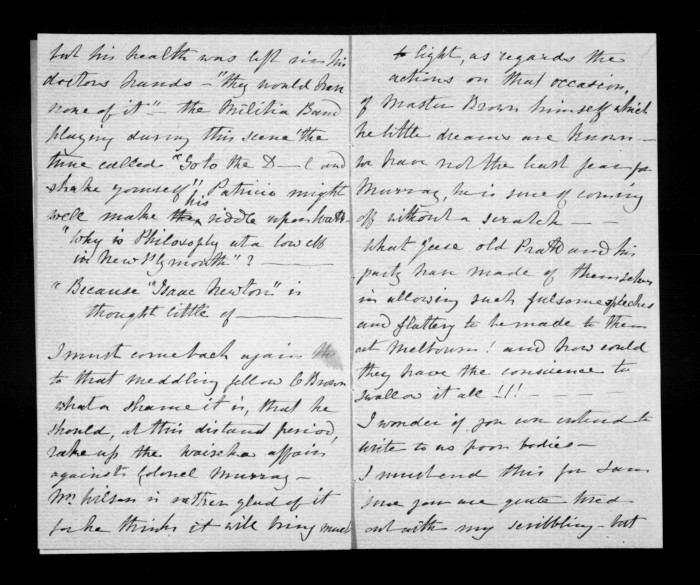 but his health was left in his
doctors hands – "they would have
none of it" – the Militia Band
playing during this scene the
tune called "Go to the D–l and
shake yourself" Patricia might
well make his riddle upon that –
"Why is Philosophy at a low ebb
in New Plymouth"? –
"Because "Isaac Newton" is
thought little of –
I must come back again
to that meddling fellow C Brown
what a shame it is, that he
should, at this distant period,
rake up the Waireka affair
against Colonel Murray –
Mr Wilson is rather glad of it
for he thinks it will bring much
to light, as regards the
actions on that occasion,
of Master Brown himself which
he little dreams are known –
we have not the least fear for
Murray, he is sure of coming
off without a scratch – –
What geese old Pratt and his
party have made of themselves
in allowing such fulsome speeches
and flattery to be made to them
at Melbourne! and how could
they have the conscience to
swallow it all !!! – – – –
I wonder if you ever intend to
write to us poor bodies –
I must end this for I am
sure you are quite tired
out with my scribbling – but